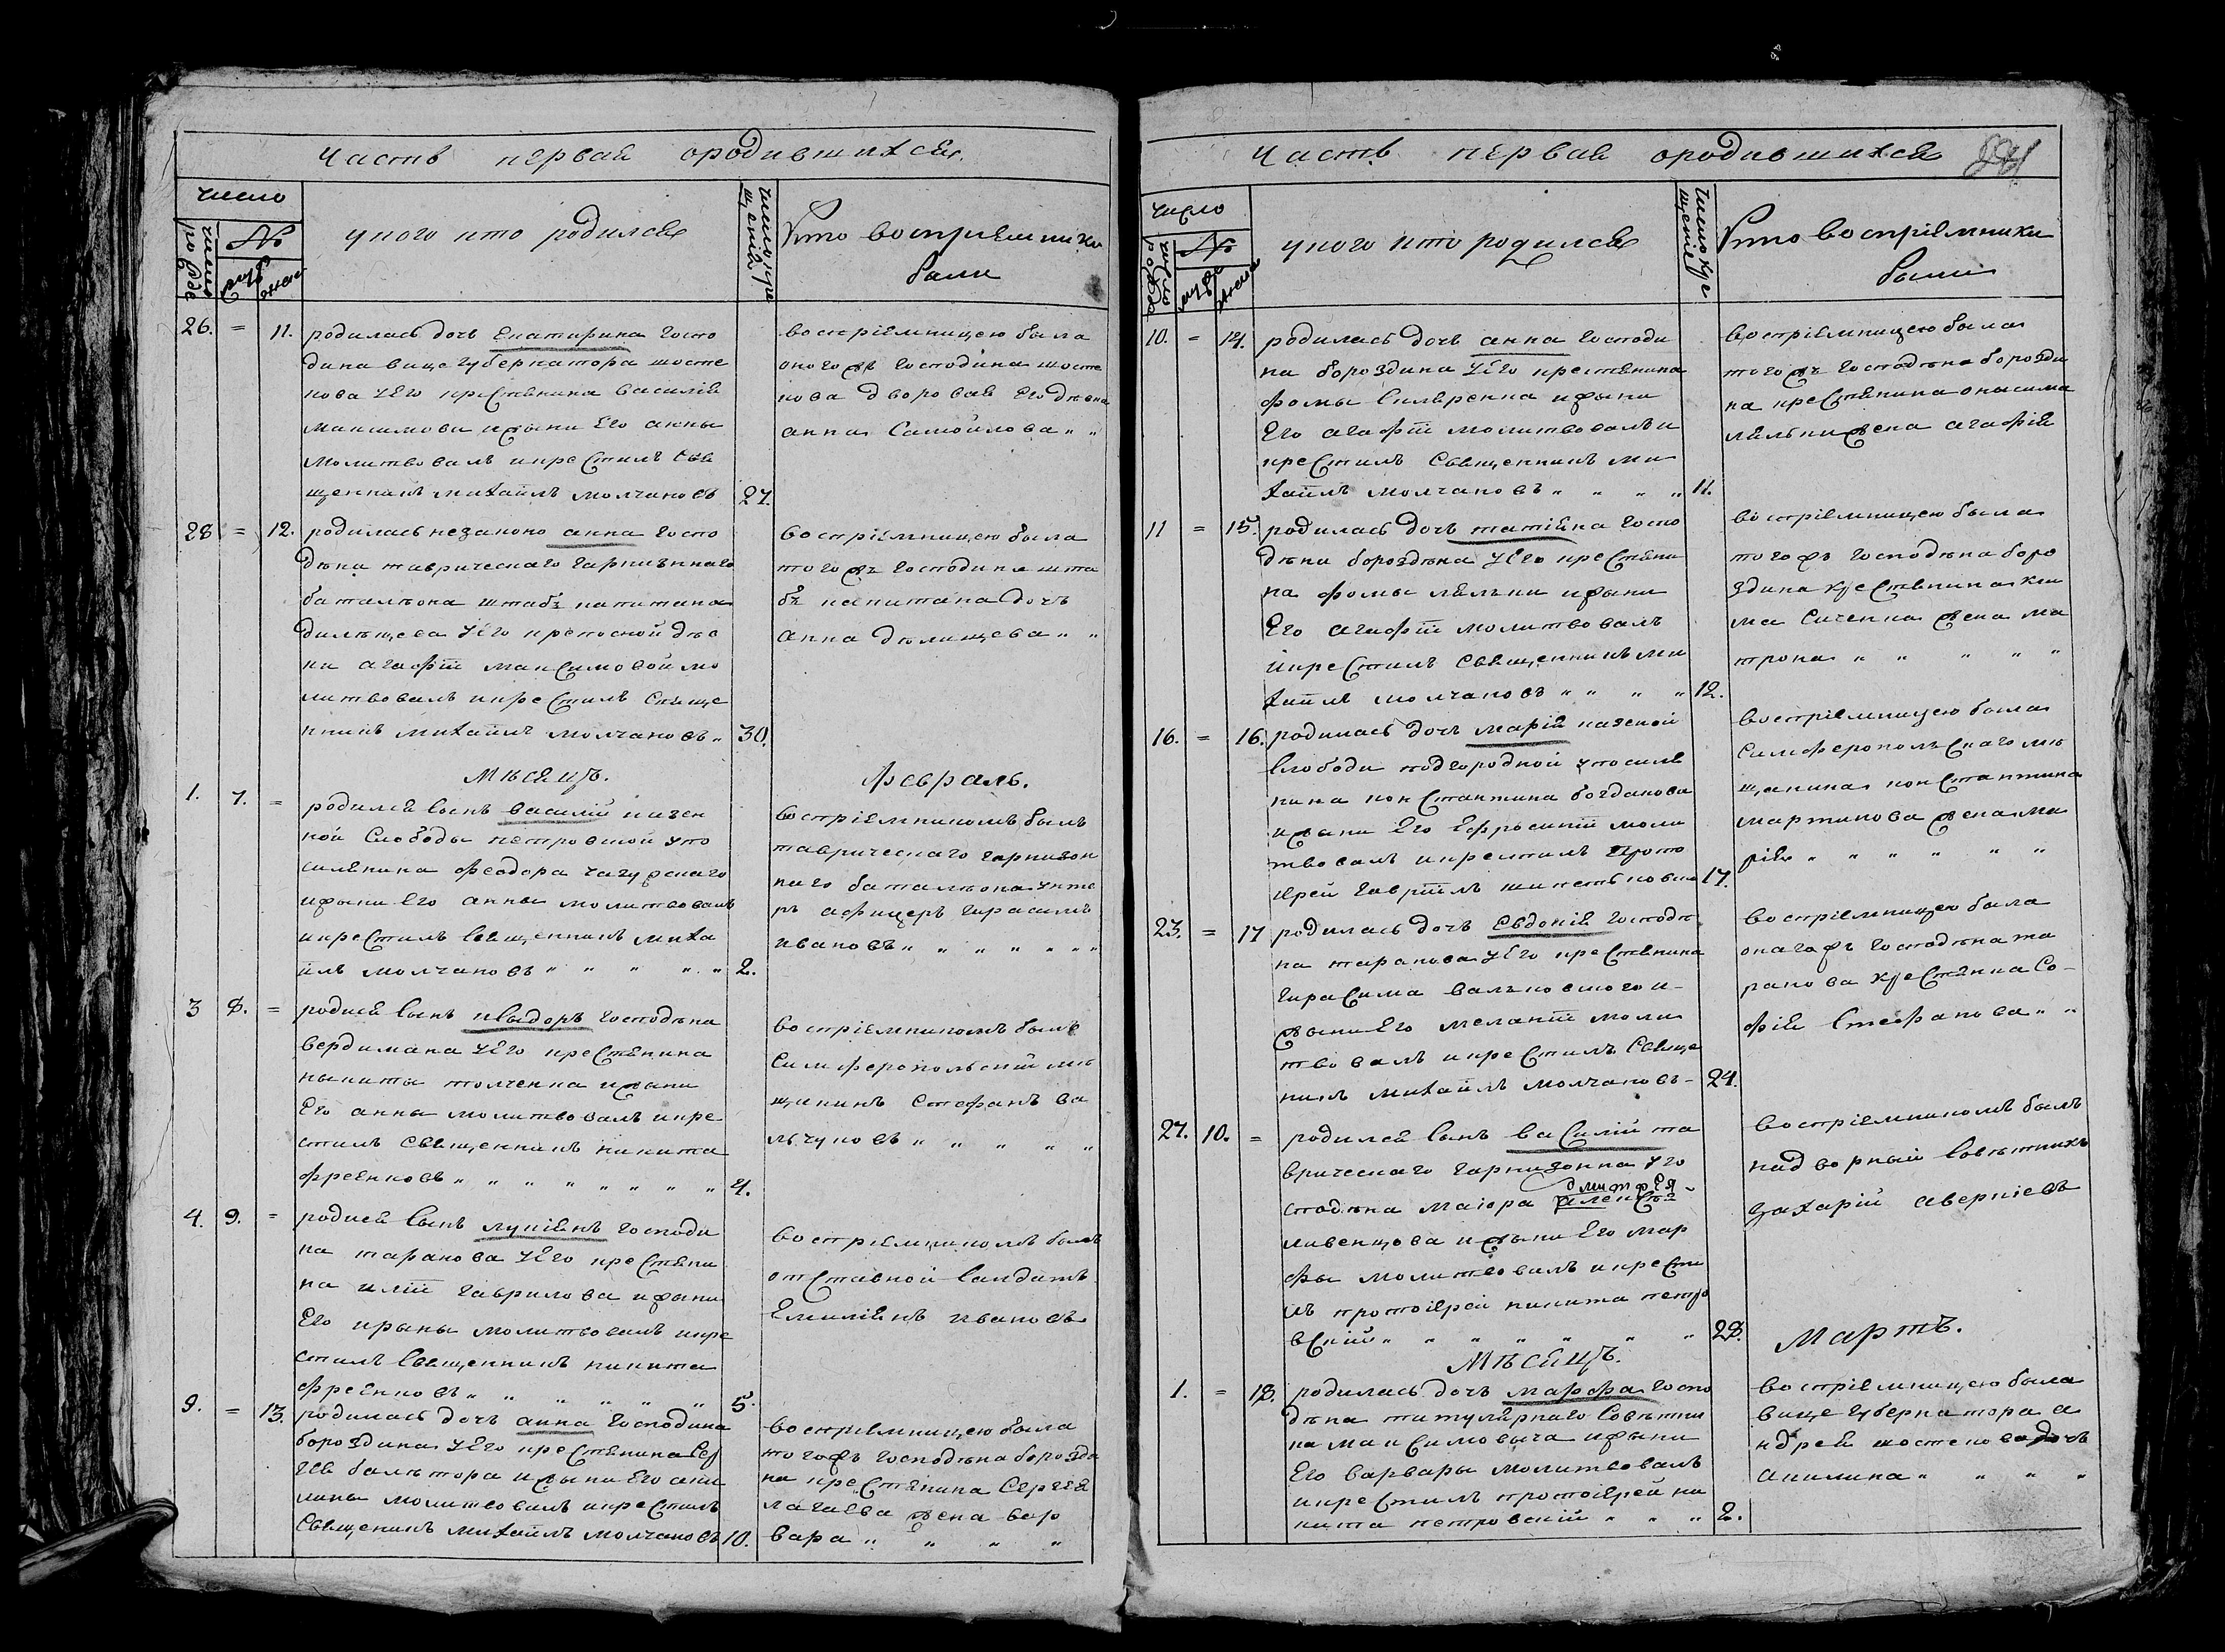 Часть первая ородившихся.
число
число рожде
№
муж
женс
укого кто родился
число кре
щений
Кто восприемники
были
26. = 11. родилась дочь Екатирина госпо
дина вице губернатора шосте
нова уего крестянина василія
максимова ижыни Его анны
молитвовалъ икрестилъ свя
щенникъ михаилъ молчановъ 27.
восприемницею была
оногожъ господина шосте
нова дворовая его девка
анна самойлова „ „
28 = 12. родилась незаконо анна госпо
дѣна таврическаго гарнизннаго
баталиона штабъ капитана
уего крепосной дѣв
ки агафіи максимовой мо
литвовалъ икрестилъ свяще
нникъ михаилъ молчановъ „ 30.
восприемницею была
тогожъ господина шта
бъ капитана дочь
анна
Мѣсяцъ.
февраль.
1. 7. = родился сынъ василій казен
ной слободы петровской упо
силянина феодора
ижыни Его анны молитвовалъ
икрестилъ священникъ миха
илъ молчановъ „ „ „ „ „ 2.
восприемникомъ былъ
таврическаго гарнизон
наго баталиона унте
ръ афицеръ гирасимъ
ивановъ „ „ „ „ „ „
3 8. = родися сынъ исыдоръ господѣна
вердимана уего крестянина
никиты толченка ижыни
Его анны молитвовалъ икре
стилъ священникъ никита
ефремовъ „ „ „ „ „ „ „ 4.
восприемникомъ былъ
симферопольскій мѣ
щанинъ стефанъ ва
льчуновъ „ „ „ „ „
4. 9. = родися сынъ лукіянъ господи
на таранова уего крестяни
на иліи гаврилова ижыни
Его ирыны молитвовалъ икре
стилъ священникъ никита
ефремовъ „ „ „ „ „ „ 5.
восприемникомъ былъ
отставной салдатъ
Емилянъ ивановъ
9. = 13. родилась дочь анна господина
бороздина уего крестянина сер
гея ижыни Его аки
лины молитвовалъ икрестилъ
священикъ михаилъ молчановъ 10.
восприемницею была
тогожъ господѣна борозди
на крестянина сергея
жена вар
вара „ „ „ „
Часть первая ородившихся
число
число рожде
№
муж
женска
укого кто родился
число кре
щение
Кто восприемники
были
10. = 14. родилась дочь анна господи
на бороздина уего крестянина
фомы ижыни
Его агафіи молитвовалъ и
крестилъ священникъ ми
хаилъ молчановъ „ „ „ „ 11.
восприемницею была
тогожъ господѣна борозди
на крестянина
жена агафія
11 = 15. родилась дочь татіяна госпо
дѣна бороздѣна уего крестяни
на фомы ижыни
Его агафіи молитвовалъ
икрестилъ священникъ ми
хаилъ молчановъ „ „ „ „ 12.
восприемницею была
тогожъ господѣна боро
здина крестянина кли
ма жена ма
трона „ „ „ „ „
16. = 16. родилась дочь марія казеной
слободи подгородной упосиля
нина константина богданова
ижыни Его Ефросиніи моли
твовалъ икрестилъ прото
иерей гавріилъ 17.
восприемницею была
симферопольскаго мѣ
щанина константина
мартинова жена ма
рія „ „ „ „ „ „
23. = 17 родилась дочь Евдокія господѣ
на таранова уего крестянина
гирасима валковского и-
жыни Его меланіи моли
твовалъ икрестилъ свяще
никъ михаилъ молчановъ - 24.
восприемницею была
онагожъ господѣна та
ранова крестянка со-
фія стефанова „ „
27. 10. = родился сынъ василій та
врическаго гарнизонна уго
сподѣна маіора алексея
дмитрея
ливенцова ижыни Его мар
фы молитвовалъ икрести
лъ протоіерей никита петро
вский „ „ „ „ „ „ „ 28.
восприемникомъ былъ
надворный советникъ
захарій аверкіевъ
Мѣсяцъ.
Мартъ.
1. = 18. родилась дочь марфа госпо
дѣна титулярнаго советни
ка максимовыча ижыни
Его варвары молитвовалъ
икрестилъ протоіерей ни
кита петровскій „ „ „ 2.
восприемницею была
вице губернатора а
ндрея шостенова дочь
акилина „ „ „ „